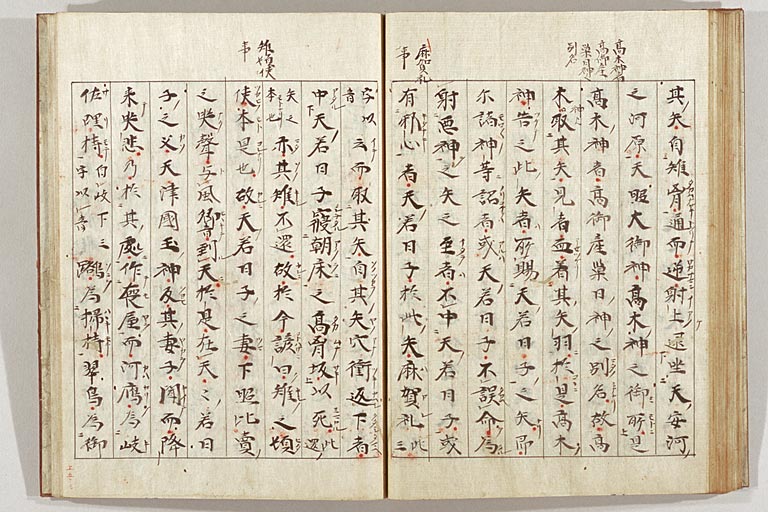 高木神者
高御産
巣日神
別名
其矢自雉胷通而逆射上逮坐天安河
之河原天照大御神高木神之御所是
高木神者高御産巣日神之別名故高
木神取其矢見者血着其矢羽於是高木
神告之此矢者所賜天若日子之矢即
尓諸神等詔者或天若日子不誤命為
射悪神之矢之至者不中天若日子或
麻賀礼
事
有邪心者天若日子於此矢麻賀礼此三
字以音云而取其矢自其矢穴衝返下者
中天若日子寢朝床之高胷坂以死此還
矢之本也亦其雉不還故於今諺曰雉之頓
雉頓使
事
使本是也故天若日子之妻下照比賣
之哭聲与風響到天於是在天々若日
子之父天津國玉神及其妻子聞而降
来哭悲乃於其處作喪屋而河鴈為岐
佐理持自岐下三字以音鷺為掃持翠鳥為御